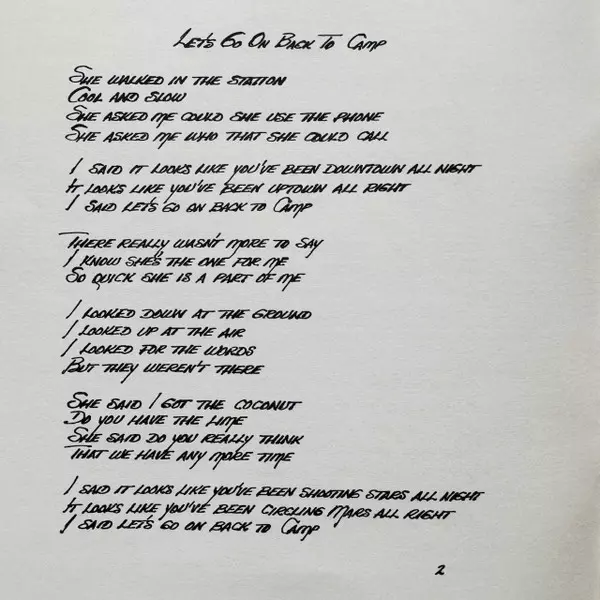 LET'S GO ON BACK TO CAMP
SHE WALKED IN THE STATION
COOL AND SLOW
SHE ASKED ME COULD SHE USE THE PHONE
SHE ASKED ME WHO THAT SHE COULD CALL
I SAID IT LOOKS LIKE YOU'VE BEEN DOWNTOWN ALL NIGHT
IT LOOKS LIKE YOU'VE BEEN UPTOWN ALL RIGHT
I SAID LET'S GO ON BACK TO CAMP
THERE REALLY WASN'T MORE TO SAY
I KNOW SHE'S THE ONE FOR ME
SO QUICK SHE IS A PART OF ME
I LOOKED DOWN AT THE GROUND
I LOOKED UP AT THE AIR
I LOOKED FOR THE WORDS
BUT THEY WEREN'T THERE
SHE SAID I GOT THE COCONUT
DO YOU HAVE THE LIME
SHE SAID DO YOU REALLY THINK
THAT WE HAVE ANY MORE TIME
I SAID IT LOOKS LIKE YOU'VE BEEN SHOOTING STARS ALL NIGHT
IT LOOKS LIKE YOU'VE BEEN CIRCLING MARS ALL RIGHT
I SAID LET'S GO ON BACK TO CAMP
2